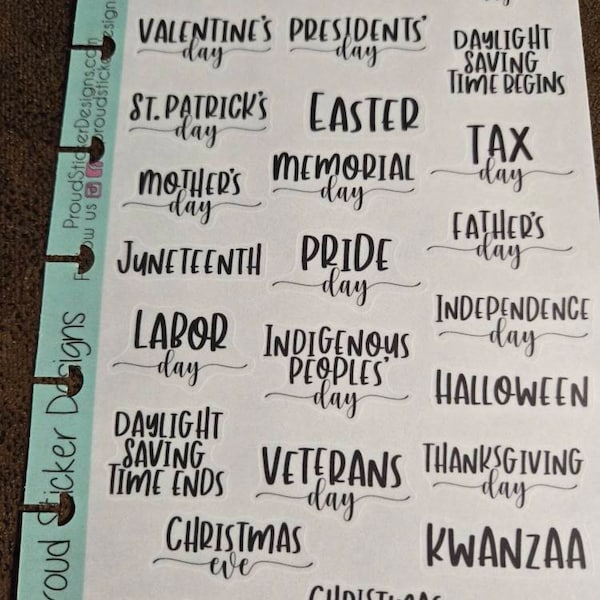 VALENTINE'S
day
PRESIDENTS'
day
DAYLIGHT
SAVING
TIME BEGINS
ST. PATRICK'S
day
EASTER
TAX
day
MOTHER'S
day
MEMORIAL
day
FATHER'S
day
JUNETEENTH
PRIDE
day
INDEPENDENCE
day
LABOR
day
INDIGENOUS
PEOPLES'
day
HALLOWEEN
DAYLIGHT
SAVING
TIME ENDS
VETERANS
day
THANKSGIVING
day
CHRISTMAS
eve
KWANZAA
CHRISTMAS
ProudStickerDesigns.com
us
proudstickerdesigns
Sticker Designs